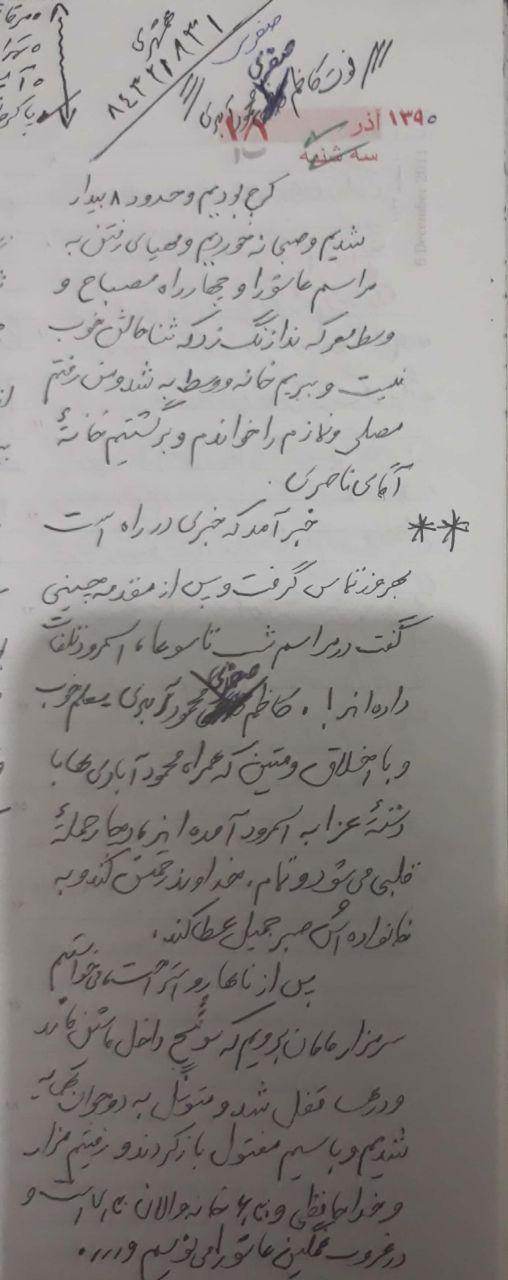 صفری
صفری
۸۴۳۲۱۸۳۱
فوت کاظم محمودآبادی
۱۳۹۰ آذر
سه شنبه
6 December 2011
کرج بودیم و حدود ۸ بیدار
شدیم و صبحانه خوردیم و مهیای رفتن به
مراسم عاشورا و چهارراه مصباح و
وسط معرکه ندا زنگ زد که ثنا حالش خوب
نیست و ببریم خانه و وسط به شد و من رفتم
مصلی و نمازم را خواندم و برگشتیم خانهٔ
آقای ناصری.
** خبر آمد که خبری در راه است
بهروز تماس گرفت و پس از مقدمه چینی
گفت در مراسم شب تاسوعا، اسمرود تلفات
داده اند! . کاظم صفری محمودآبادی معلم خوب
و با اخلاق و متین که همراه محمودآبادی ها با
دستهٔ عزا به اسمرود آمده اند، دچار حملهٔ
قلبی می شود و تمام. خداوند رحمتش کند و به
خانواده اش صبر جمیل عطا کند.
پس از ناهار و استراحت، می خواستیم
سر مزار مامان برویم که سوئیچ داخل ماشین ماند
و درها قفل شد و متوسل به دو جوان همسایه
شدیم و با سیم مفتول باز کردند و رفتیم مزار
و خداحافظی و ۶٫۳۰ خانه و الان ۷٫۳۰ است و
در غروب غمگین عاشورا می نویسم و ....